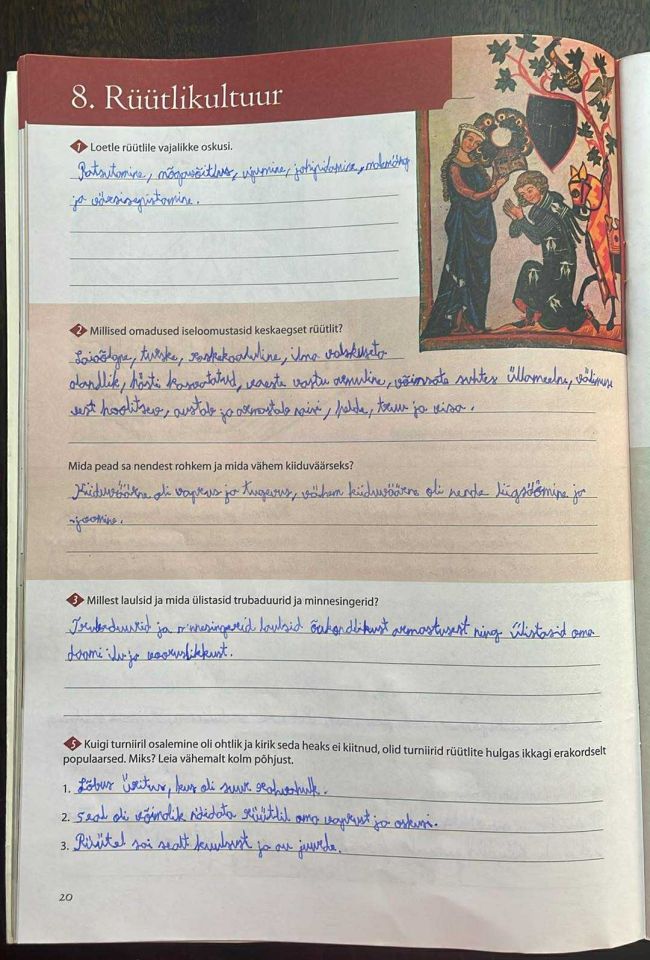 8. Rüütlikultuur
1 Loetle rüütlile vajalikke oskusi.
Ratsutamine, mõgavõitlus, ujumine, jahipidamine, malemäng
ja värsisepistamine.
2 Millised omadused iseloomustasid keskaegset rüütlit?
Laiaõlgne, turske, raskekaaluline, ilma
alandlik, hästi kasvatatud, vaeste vastu armuline, võimsate suhtes üllameelne, välimuse
eest hoolitsev, austab ja armastab naisi, helde, truu ja visa.
Mida pead sa nendest rohkem ja mida vähem kiiduväärseks?
Kiiduväärne oli vaprus ja tugevus, vähem kiiduväärne oli nende liigsöömine ja
-joomine.
3 Millest laulsid ja mida ülistasid trubaduurid ja minnesingerid?
Trubaduurid ja minnesingerid laulsid õukondlikust armastusest ning ülistasid oma
daami ilu ja vooruslikkust.
5 Kuigi turniiril osalemine oli ohtlik ja kirik seda heaks ei kiitnud, olid turniirid rüütlite hulgas ikkagi erakordselt
populaarsed. Miks? Leia vähemalt kolm põhjust.
1. Lõbus üritus, kus oli suur rahvahulk.
2. Seal oli võimalik näidata rüütlil oma vaprust ja oskusi.
3. Rüütel sai sealt kuulsust ja au juurde.
20